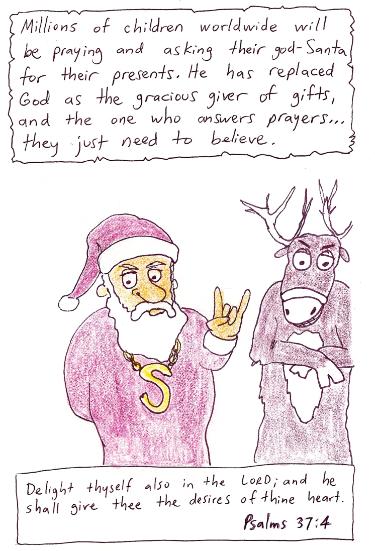 Millions of children worldwide will
be praying and asking their god-Santa
for their presents. He has replaced
God as the gracious giver of gifts,
and the one who answers prayers...
they just need to believe.
S
Delight thyself also in the LORD; and he
shall give thee the desires of thine heart.
Psalms 37:4